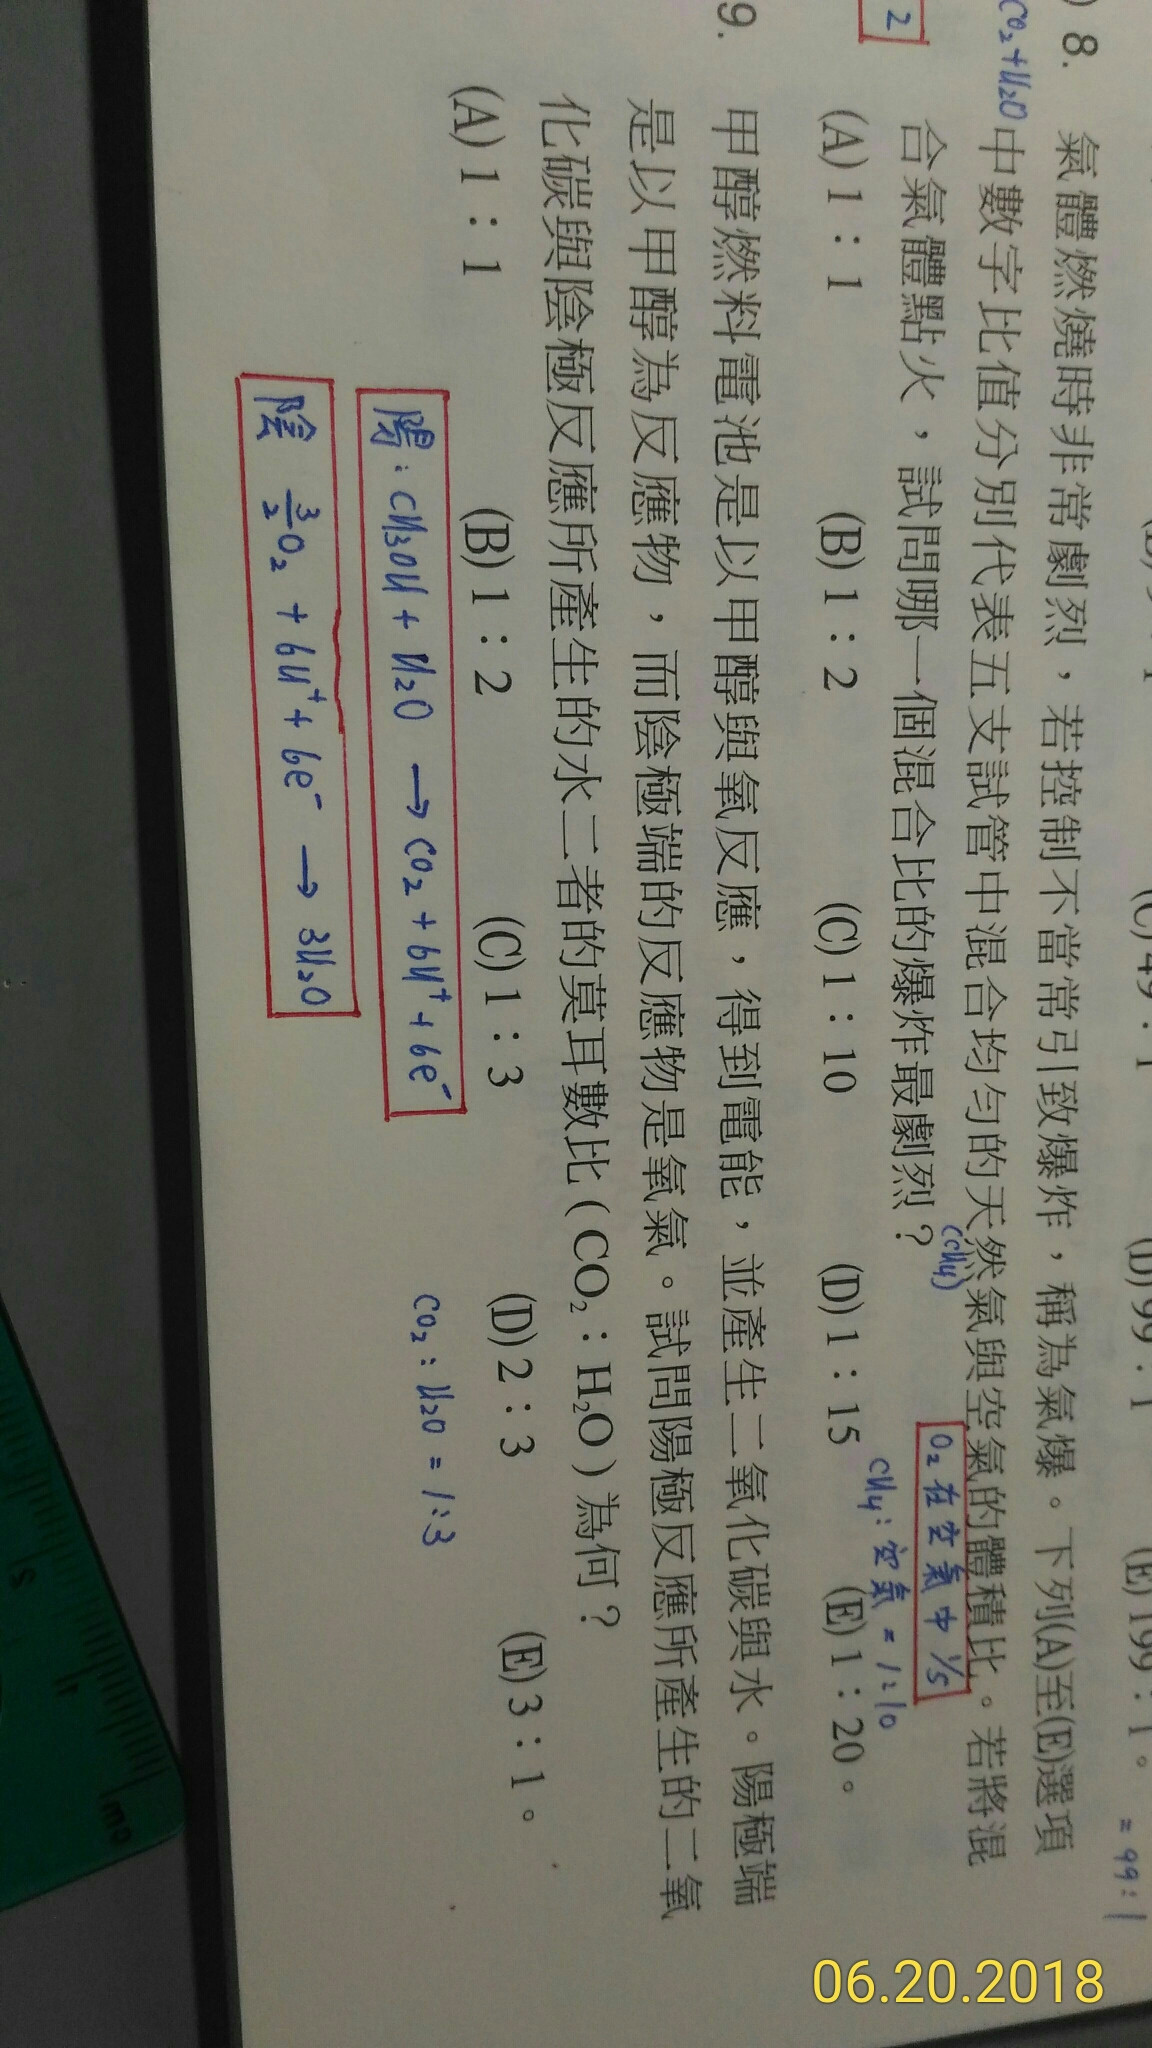 (C)49：1
(D)99：1
(E)199：1。
= 99：1
8. 氣體燃燒時非常劇烈，若控制不當常引致爆炸，稱為氣爆。下列(A)至(E)選項
CO₂+H₂O
中數字比值分別代表五支試管中混合均勻的天然氣與空氣的體積比。若將混
(CH₄)
O₂在空氣中1/5
合氣體點火，試問哪一個混合比的爆炸最劇烈？
2
CH₄：空氣 = 1：10
(A) 1：1 (B) 1：2 (C) 1：10 (D) 1：15 (E) 1：20。
9. 甲醇燃料電池是以甲醇與氧反應，得到電能，並產生二氧化碳與水。陽極端
是以甲醇為反應物，而陰極端的反應物是氧氣。試問陽極反應所產生的二氧
化碳與陰極反應所產生的水二者的莫耳數比(CO₂：H₂O)為何？
(A) 1：1 (B) 1：2 (C) 1：3 (D) 2：3 (E) 3：1。
陽：CH₃OH + H₂O → CO₂ + 6H⁺ + 6e⁻
CO₂：H₂O = 1：3
陰 3/2 O₂ + 6H⁺ + 6e⁻ → 3H₂O
06.20.2018